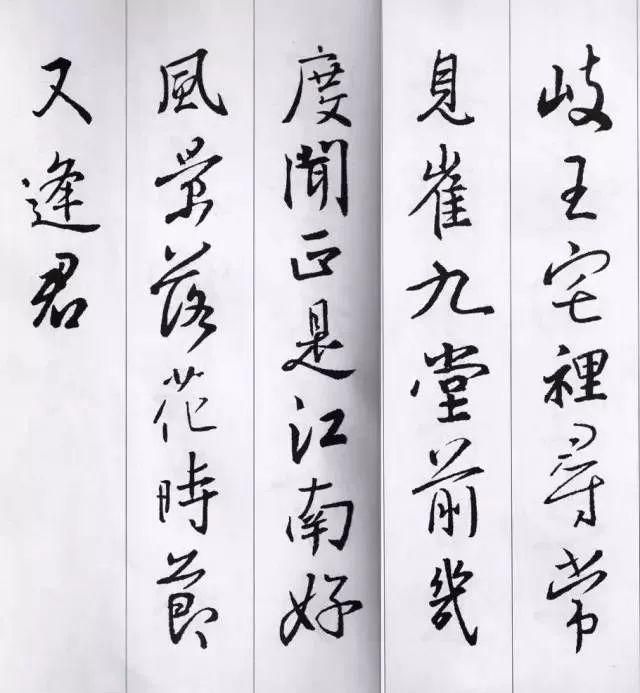 岐王宅裡尋常
見崔九堂前幾
度聞正是江南好
風景落花時節
又逢君